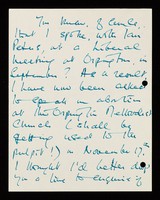 You know, of course,
that I spoke, with Ian
at a Liberal
meeting at Orpington in
September? As a result,
I have now been asked
to speak on abortion
at the Orpington Methodist
Church (I shall
used to the
pulpit!) on November 17th
I thought I'd better drop
you a line to enquire if